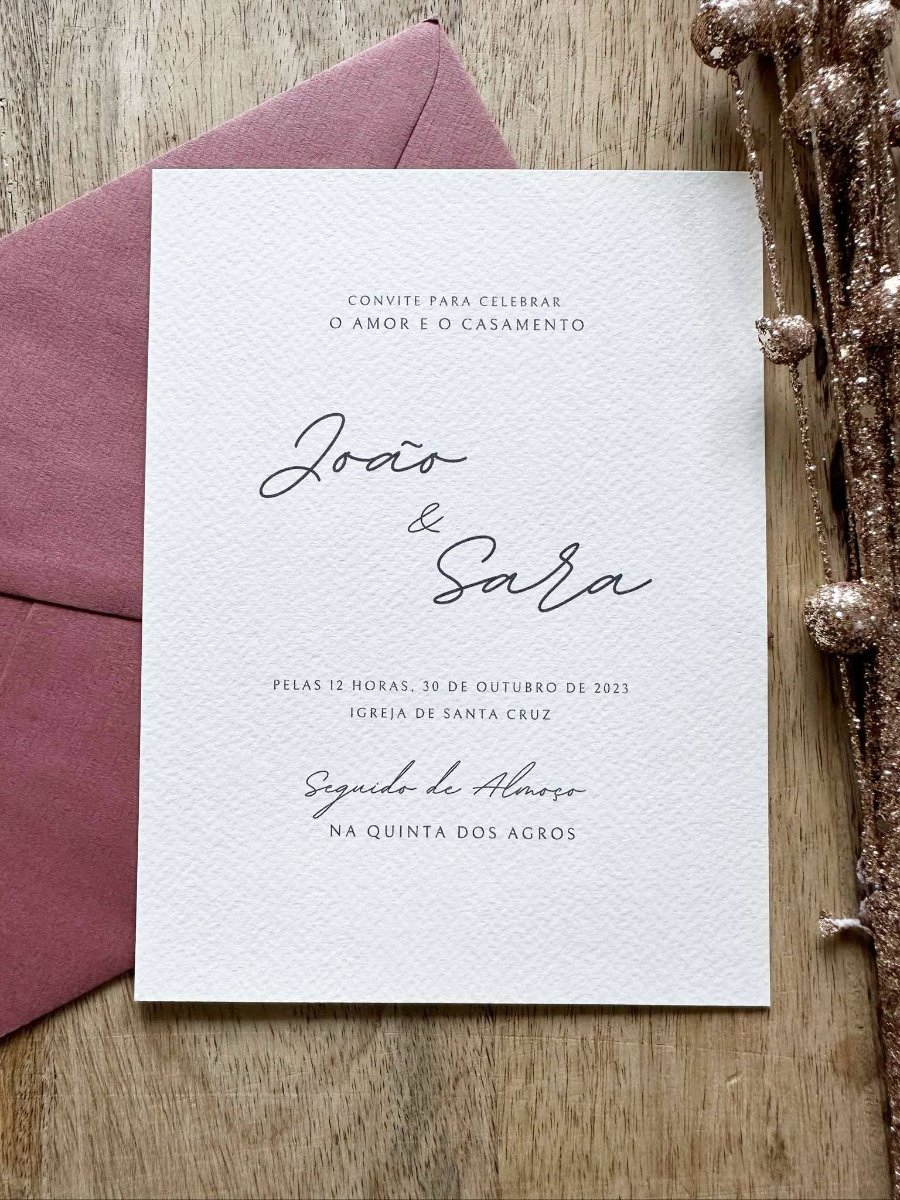 CONVITE PARA CELEBRAR
O AMOR E O CASAMENTO
João
&
Sara
PELAS 12 HORAS, 30 DE OUTUBRO DE 2023
IGREJA DE SANTA CRUZ
Seguido de Almoço
NA QUINTA DOS AGROS